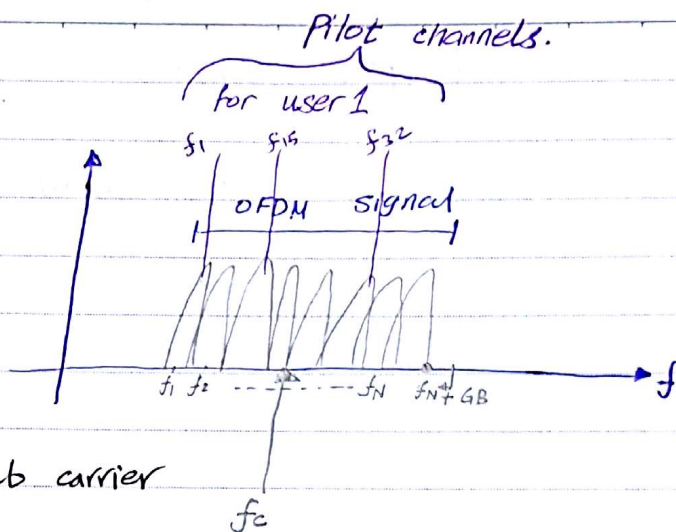 Pilot channels.
for user 1
f1 f15 f32
OFDM signal
f1 f2 ------- fN fN+ GB
f
b carrier
fc